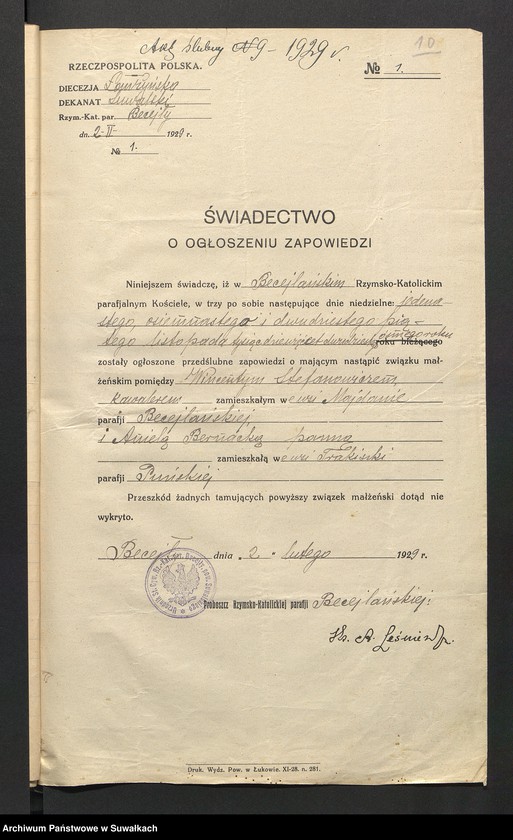 Akt ślubny № 9 - 1929 r.
10
RZECZPOSPOLITA POLSKA.
№ 1.
DIECEZJA Łomżyńska
DEKANAT Suwalski
Rzym.-Kat. par. Becejły
dn. 2-II- 1929 r.
№ 1.
ŚWIADECTWO
O OGŁOSZENIU ZAPOWIEDZI
Niniejszem świadczę, iż w Becejlańskim Rzymsko-Katolickim
parafjalnym Kościele, w trzy po sobie następujące dnie niedzielne: jedena-
stego, osiemnastego i dwudziestego pią-
tego listopada tysiąc dziewięćset dwudziestego ósmego roku
roku bieżącego
zostały ogłoszone przedślubne zapowiedzi o mającym nastąpić związku mał-
żeńskim pomiędzy Wincentym Stefanowiczem,
kawalerem zamieszkałym we wsi Majdanie
parafji Becejlańskiej
i Anielą Bernacką panną
zamieszkałą we wsi Trakiszki
parafji Puńskiej
Przeszkód żadnych tamujących powyższy związek małżeński dotąd nie
wykryto.
Becejły dnia „2” lutego 1929 r.
Proboszcz Rzymsko-Katolickiej parafji Becejlańskiej:
Ks. A.
Druk. Wydz. Pow. w Łukowie. XI-28. n. 281.
Archiwum Państwowe w Suwałkach